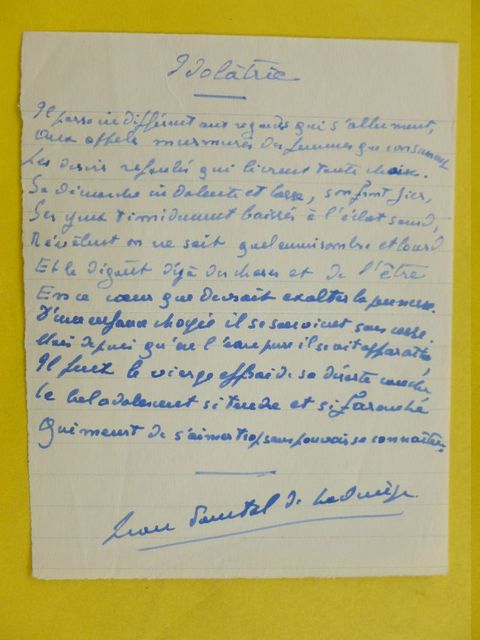 Idolâtrie
Il passe indifférent aux regards qui s'allument,
Aux appels murmurés des femmes que consument
Les désirs refoulés qui livrent toute chair.
Sa démarche indolente et lasse, son front fier,
Ses yeux timidement baissés à l'éclat sourd,
Révèlent on ne sait quel ennui sombre et lourd
Et le dégoût déjà des choses et de l'être
En ce cœur que devrait exalter la jeunesse.
D'une enfance choyée il se souvient sans cesse.
Mais depuis qu'en l'eau pure il se soit
Il fuit la vierge de sa couche
Le bel adolescent si tendre et si farouche
Qui meurt de s'aimer trop sans pouvoir se connaître.
Jean de